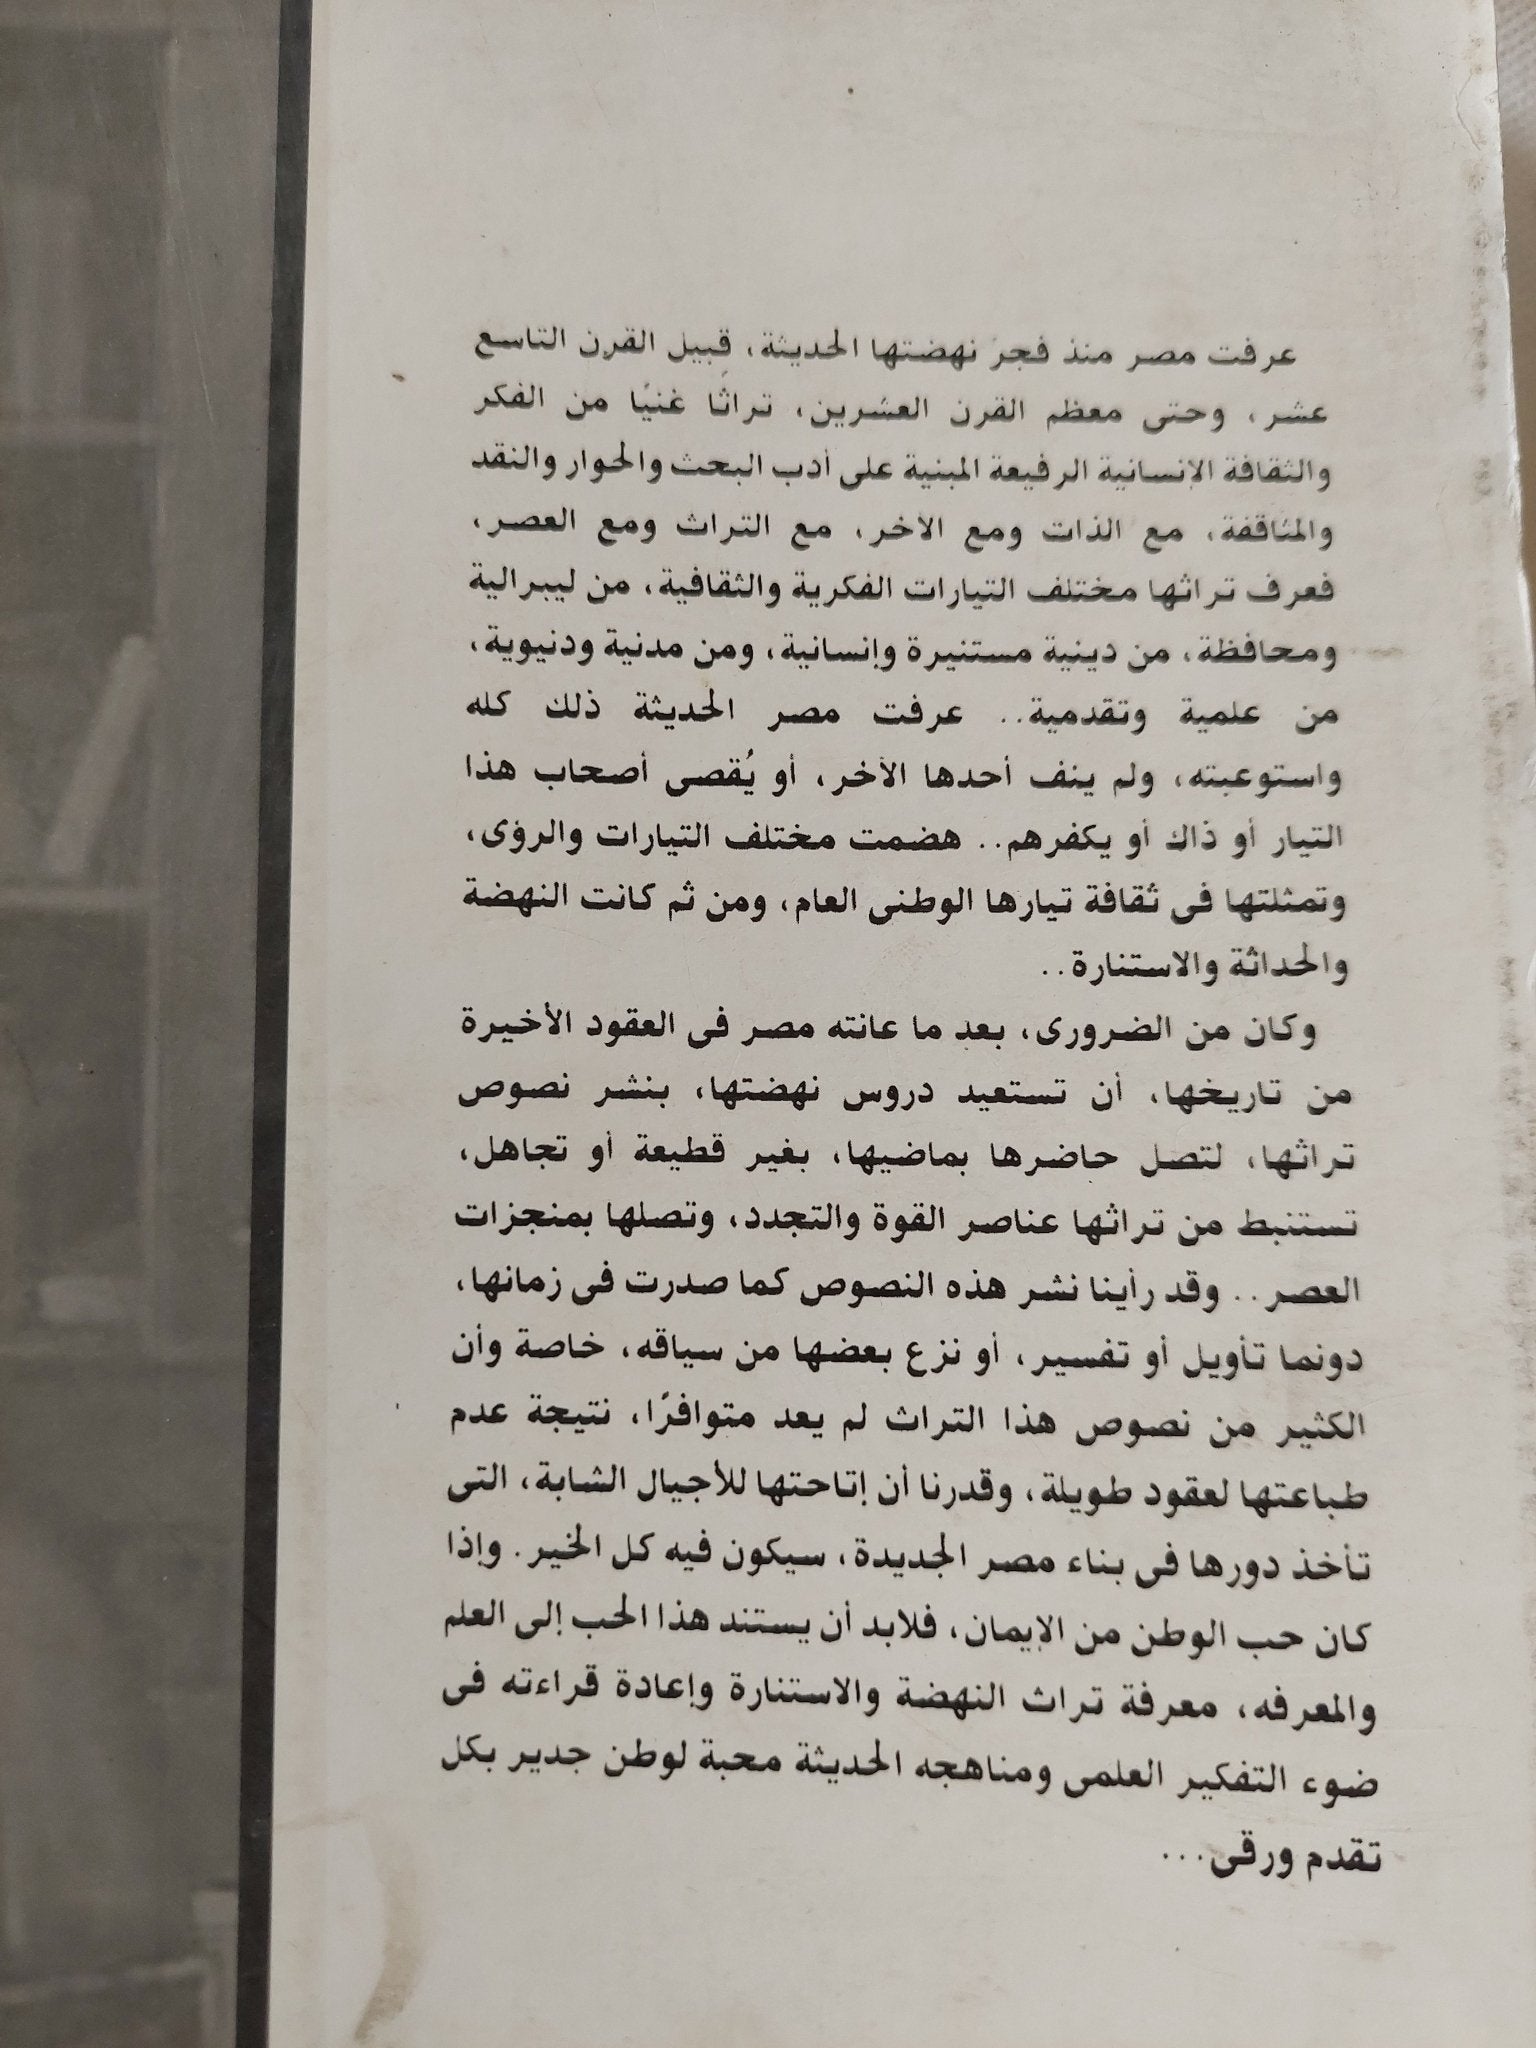 عرفت مصر منذ فجر نهضتها الحديثة، قبيل القرن التاسع
عشر، وحتى معظم القرن العشرين، تراثًا غنيًا من الفكر
والثقافة الإنسانية الرفيعة المبنية على أدب البحث والحوار والنقد
والمثاقفة، مع الذات ومع الآخر، مع التراث ومع العصر،
فعرف تراثها مختلف التيارات الفكرية والثقافية، من ليبرالية
ومحافظة، من دينية مستنيرة وإنسانية، ومن مدنية ودنيوية،
من علمية وتقدمية.. عرفت مصر الحديثة ذلك كله
واستوعبته، ولم ينف أحدها الآخر، أو يُقصى أصحاب هذا
التيار أو ذاك أو يكفرهم.. هضمت مختلف التيارات والرؤى،
وتمثلتها فى ثقافة تيارها الوطنى العام، ومن ثم كانت النهضة
والحداثة والاستنارة..
وكان من الضرورى، بعد ما عانته مصر فى العقود الأخيرة
من تاريخها، أن تستعيد دروس نهضتها، بنشر نصوص
تراثها، لتصل حاضرها بماضيها، بغير قطيعة أو تجاهل،
تستنبط من تراثها عناصر القوة والتجدد، وتصلها بمنجزات
العصر.. وقد رأينا نشر هذه النصوص كما صدرت فى زمانها،
دونما تأويل أو تفسير، أو نزع بعضها من سياقه، خاصة وأن
الكثير من نصوص هذا التراث لم يعد متوافرًا، نتيجة عدم
طباعتها لعقود طويلة، وقدرنا أن إتاحتها للأجيال الشابة، التى
تأخذ دورها فى بناء مصر الجديدة، سيكون فيه كل الخير. وإذا
كان حب الوطن من الإيمان، فلابد أن يستند هذا الحب إلى العلم
والمعرفه، معرفة تراث النهضة والاستنارة وإعادة قراءته فى
ضوء التفكير العلمى ومناهجه الحديثة محبة لوطن جدير بكل
تقدم ورقى...